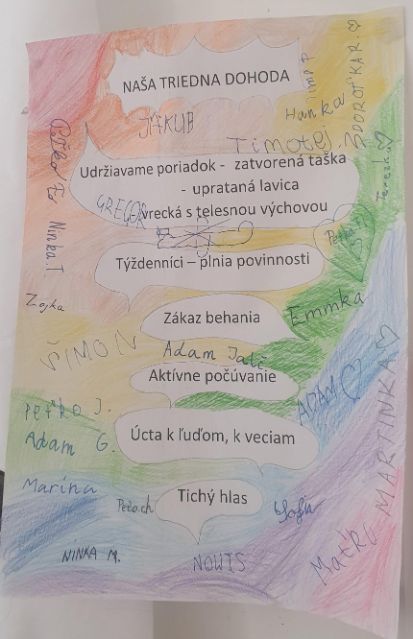 NAŠA TRIEDNA DOHODA
JAKUB
Hanka
DOROTKA R.
Timotej
Udržiavame poriadok - zatvorená taška
- uprataná lavica
vrecká s telesnou výchovou
GREGOR
Ninka.T
Terezka
Týždenníci – plnia povinnosti
Zojka
Zákaz behania
Emmka
ŠIMON
Adam
Aktívne počúvanie
PEŤKO J.
ADAM
MARTINKA
Adam G.
Úcta k ľuďom, k veciam
Marína
Tichý hlas
Peťo.ch
Sofia
NINKA M.